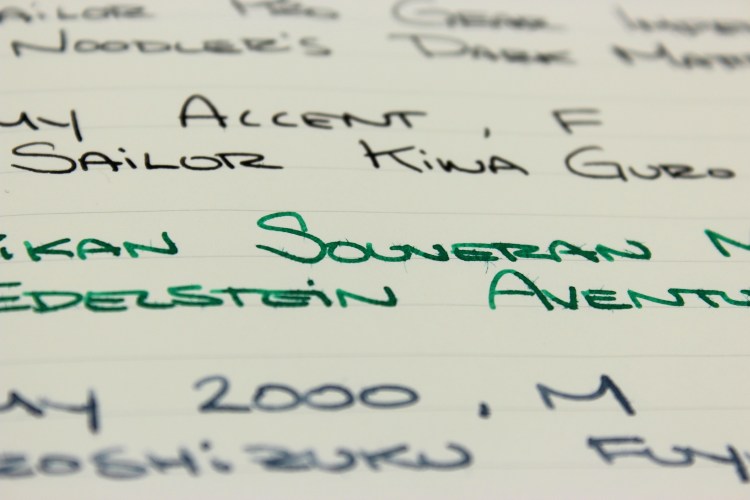 AiLOR PRO GEAR IMPER
NOODLER'S DARK MATT
MY ACCENT, F
SAiLOR KiWA GURO
iKAN SOUVERAN M
EDELSTEiN AVENTU
MY 2000, M
ROSHiZUKU FUY